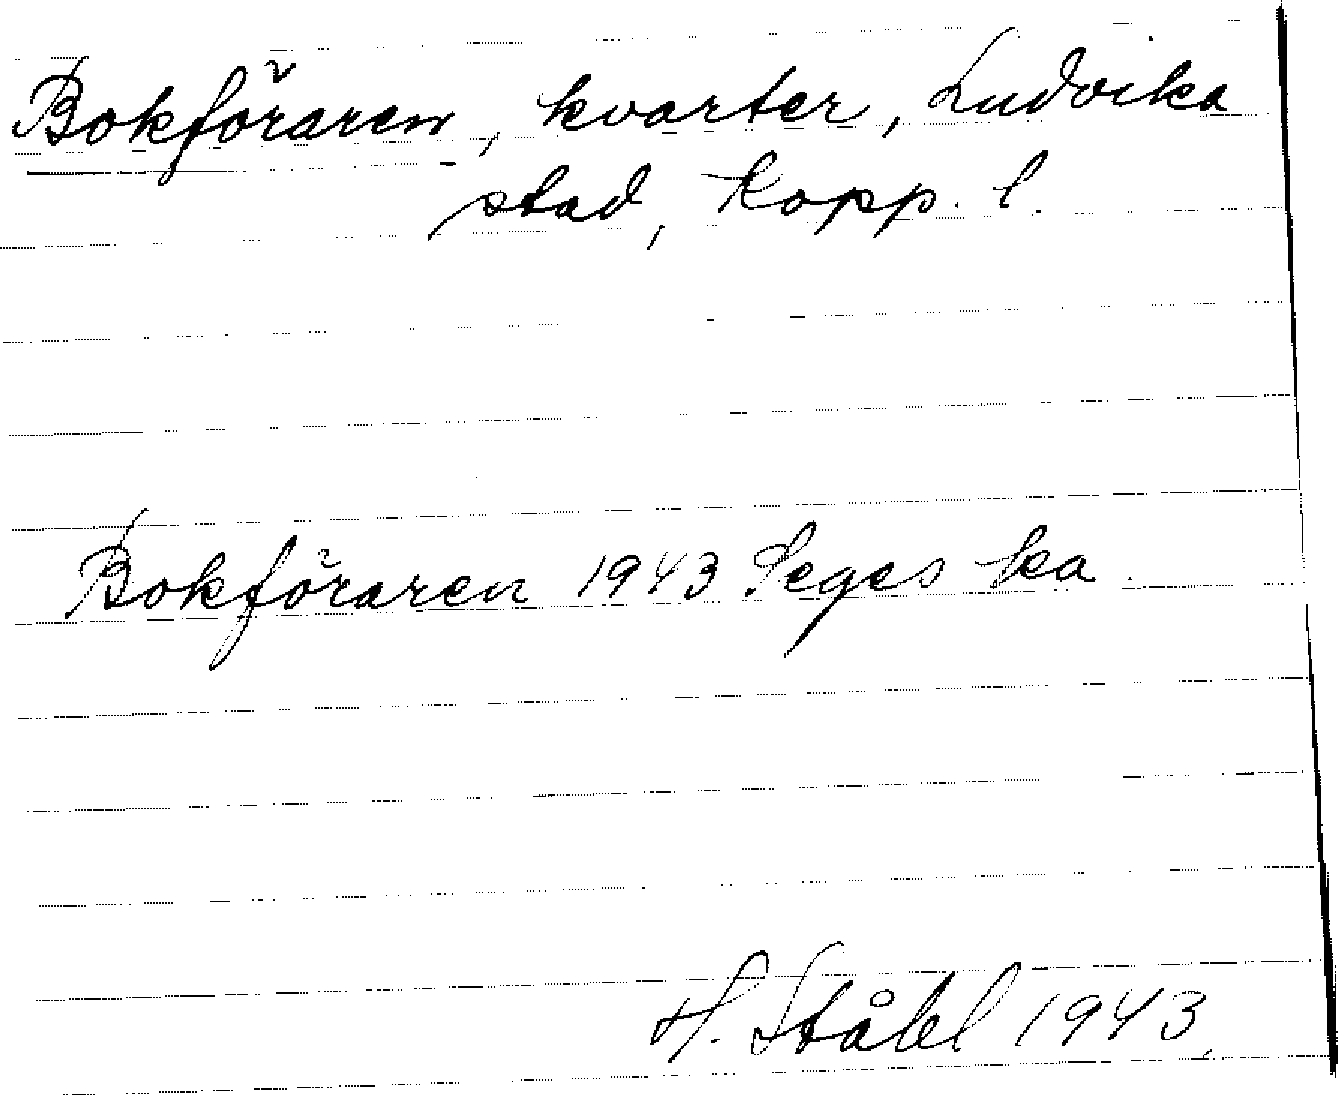 Bokföraren, kvarter, Ludvika
stad, Kopp. l.
Bokföraren 1943 Seges ka.
H. Ståhl 1943.